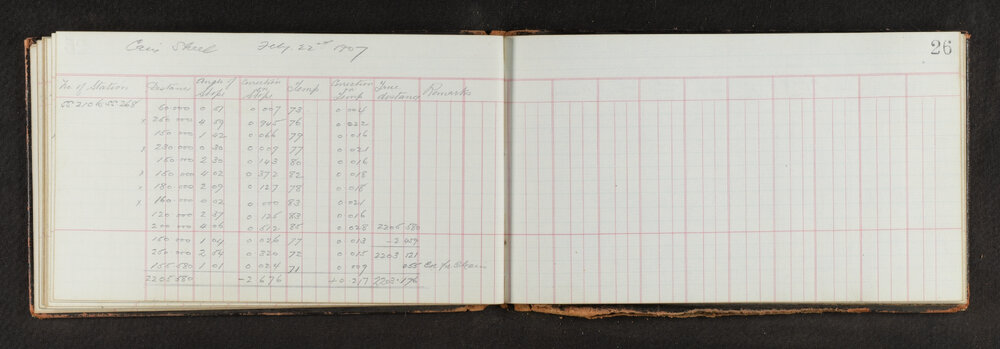 26
Feby. 22nd 1907
No of Station Distance Angle of Slope Correction Slope Temp Correction Temp True distance Remarks
60.000 0 51 0 007 73 0 004
260.000 4 59 0 945 76 0 022
150.000 1 42 0 066 79 0 016
230.000 0 30 0 009 77 0 021
150.000 2 30 0 143 80 0 016
150.000 4 02 0 372 82 0 018
180.000 2 09 0 127 78 0 018
160.000 0 02 0 000 83 0 021
120.000 2 37 0 125 83 0 016
200.000 4 06 0 512 85 0 028 2205 580
150.000 1 04 0 026 77 0 013 -2 459
250.000 2 54 0 320 72 0 015 2203 121
155.580 1 01 0 024 71 0 009 055
2205580 -2 676 +0 217 2203.176